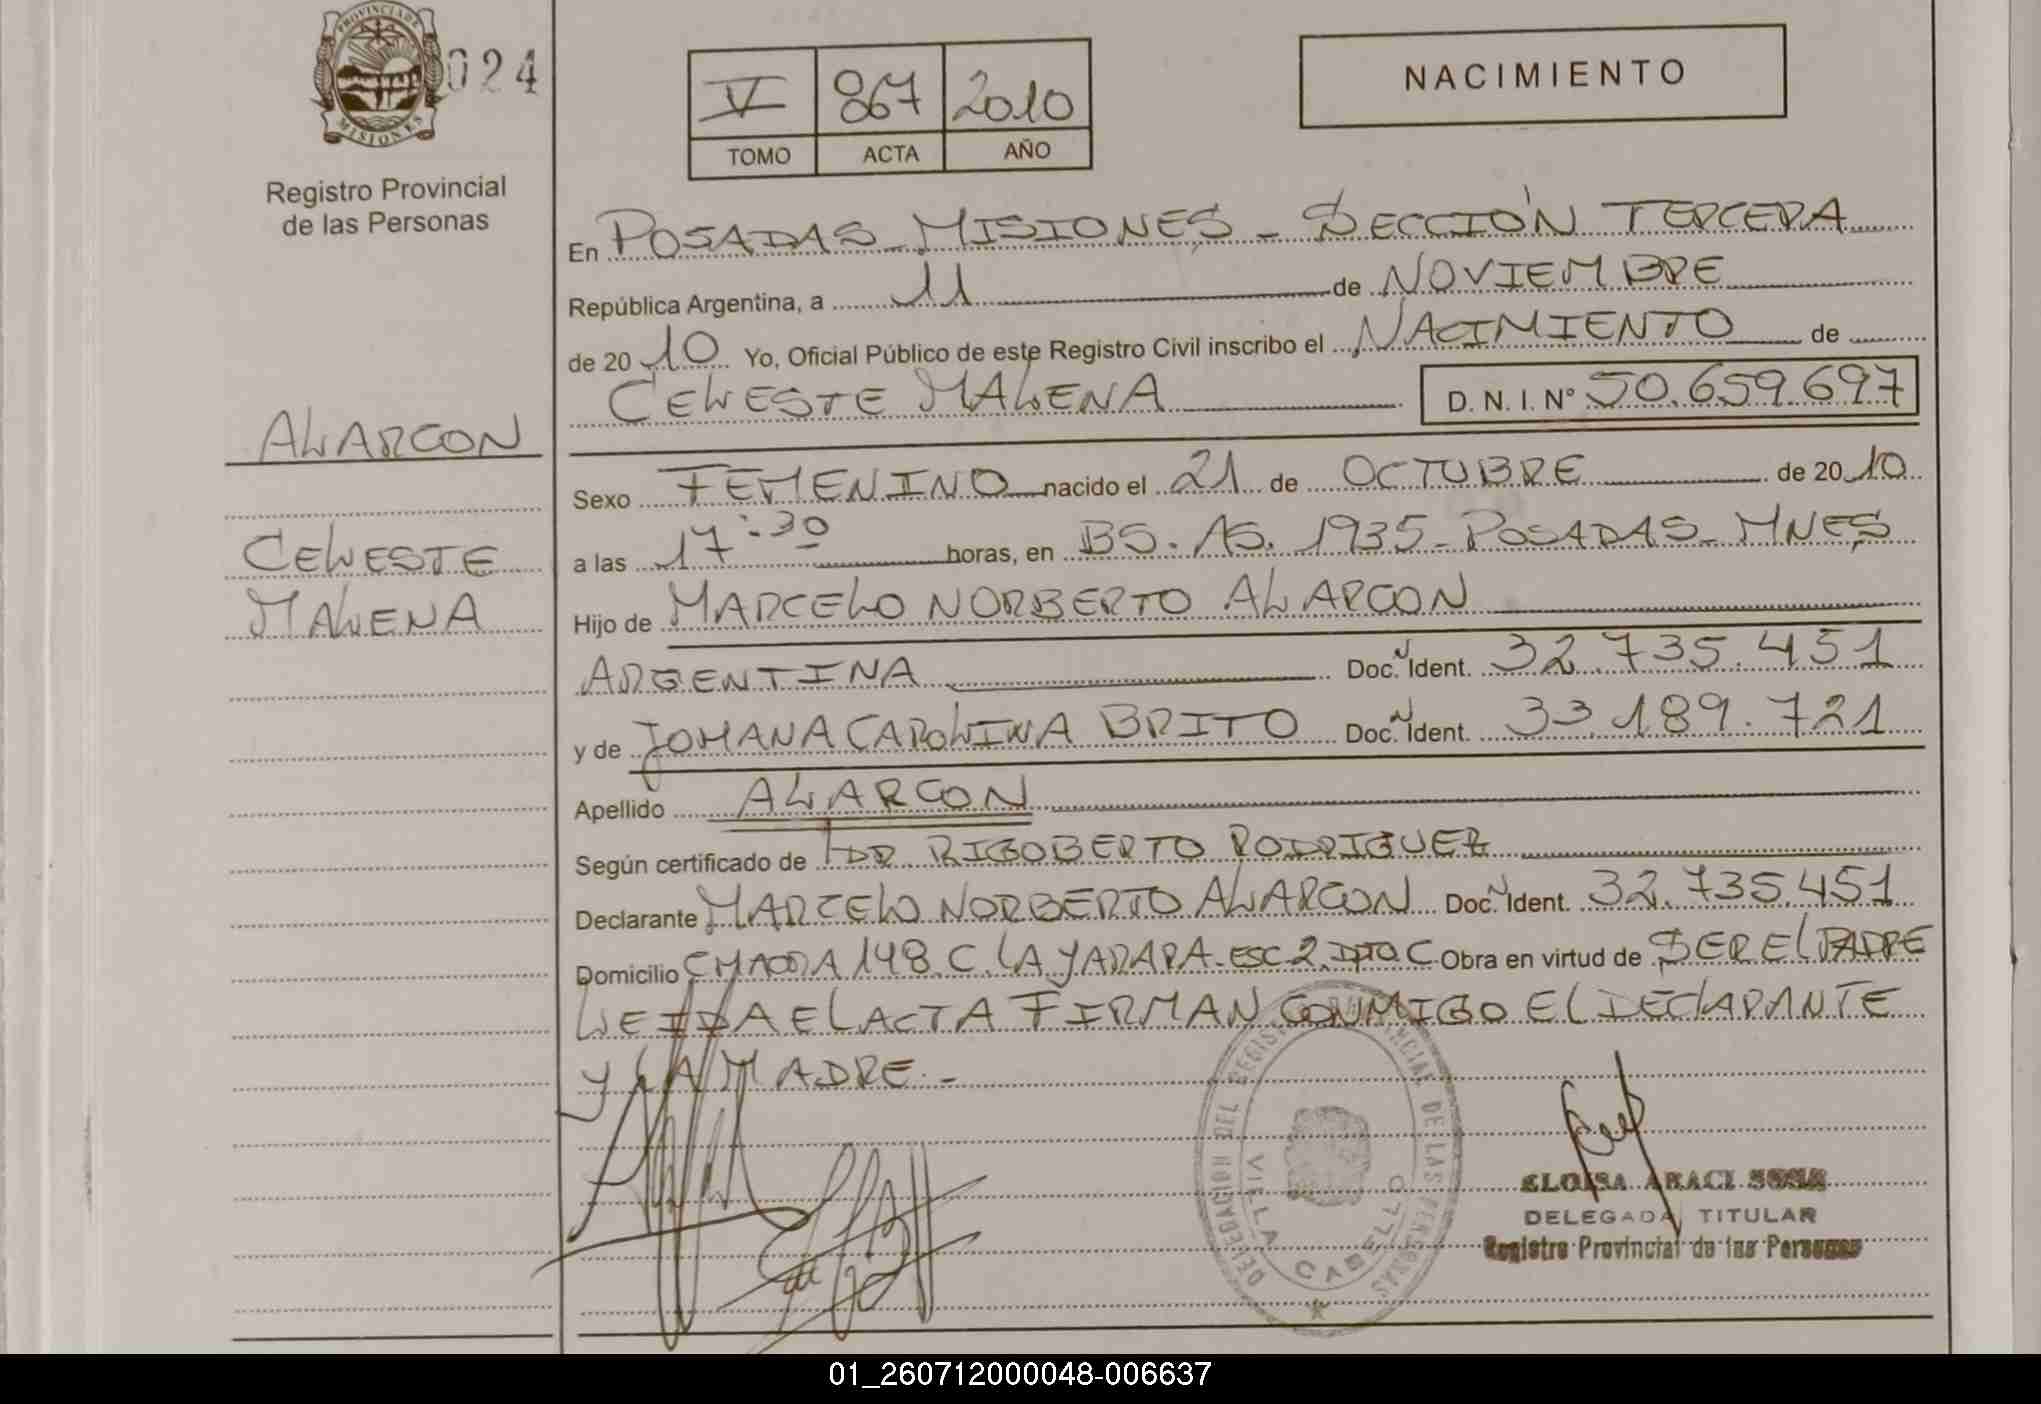 PROVINCIA DE
MISIONES
024
Registro Provincial
de las Personas
V 867 2010
TOMO ACTA AÑO
NACIMIENTO
En POSADAS - MISIONES - SECCIÓN TERCERA
República Argentina, a 11 de NOVIEMBRE
de 20 10 Yo, Oficial Público de este Registro Civil inscribo el NACIMIENTO de
CELESTE MALENA D. N. I. Nº 50.659.697
ALARCON
CELESTE
MALENA
Sexo FEMENINO nacido el 21 de OCTUBRE de 20 10
a las 17:30 horas, en BS. AS. 1935 - POSADAS - MNES
Hijo de MARCELO NORBERTO ALARCON
ARGENTINA Doc. N Ident. 32.735.451
y de JOHANA CAROLINA BRITO Doc. N Ident. 33.189.721
Apellido ALARCON
Según certificado de DR RIGOBERTO RODRIGUEZ
Declarante MARCELO NORBERTO ALARCON Doc. N Ident. 32.735.451
Domicilio CHACRA 148 C. LA YARARA - ESC 2. DPTO C Obra en virtud de SER EL PADRE
LEIDA EL ACTA FIRMAN CONMIGO EL DECLARANTE
Y LA MADRE. -
DELEGACION DEL REGISTRO PROVINCIAL DE LAS PERSONAS
VILLA CABELLO
ELOISA ARACI SOSA
DELEGADA TITULAR
Registro Provincial de las Personas
01_260712000048-006637